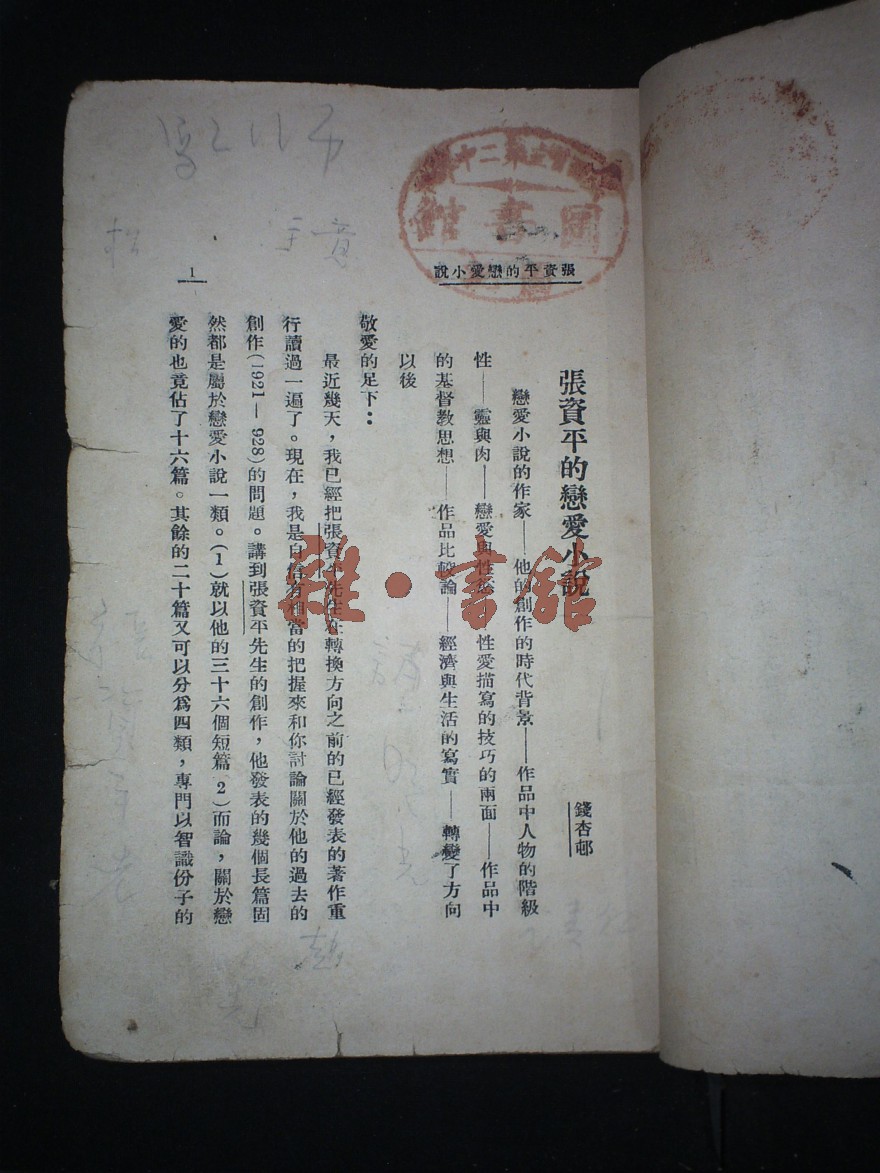 張資平的戀愛小說
1
張資平的戀愛小說
錢杏邨
戀愛小說的作家——他的創作的時代背景——作品中人物的階級
性——靈與肉——戀愛與性慾——性愛描寫的技巧的兩面——作品中
的基督教思想——作品比較論——經濟與生活的寫實——轉變了方向
以後
敬愛的足下：
最近幾天，我已經把張資平先生在轉換方向之前的已經發表的著作重
行讀過一遍了。現在，我是自信有相當的把握來和你討論關於他的過去的
創作(1921—928)的問題。講到張資平先生的創作，他發表的幾個長篇固
然都是屬於戀愛小說一類。(1)就以他的三十六個短篇 2)而論，關於戀
愛的也竟佔了十六篇。其餘的二十篇又可以分爲四類，專門以智識份子的
圖書館
雜·書館